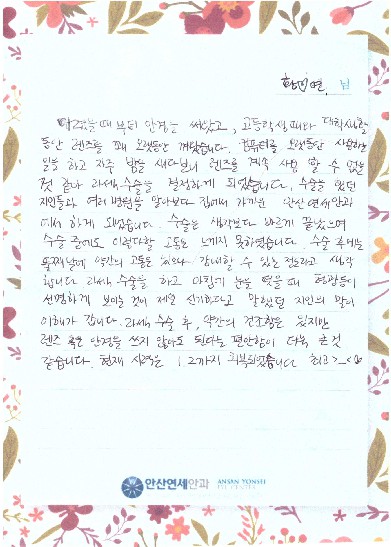 한 연 님
어렸을때부터 안경을 써왔고, 고등학생때와 대학생활
동안 렌즈를 꽤 오랫동안 껴왔습니다. 컴퓨터를 오랫동안 사용하는
일을 하고 자주 밤을 새다보니 렌즈를 계속 사용 할 수 없을
것 같아 라섹수술을 결정하게 되었습니다. 수술을 했던
지인들과 여러 병원을 알아보다 집에서 가까운 안산연세안과
에서 하게 되었습니다. 수술은 생각보다 빠르게 끝났으며
수술 중에도 이렇다할 고통은 느끼지 못하였습니다. 수술 후에는
약간의 고통은 있으나 감내할 수 있는 정도라고 생각
합니다. 라섹 수술을 하고 아침에 눈을 떴을 때 천장등이
선명하게 보이는 것이 제일 신기하다고 말했던 지인의 말이
이해가 갑니다. 라섹 수술 후, 약간의 건조함은 있지만
렌즈 혹은 안경을 쓰지 않아도 된다는 편안함이 더욱 큰 것
같습니다. 현재 시력은 1.2까지 회복되었습니다 최고>_<b
안산연세안과 ANSAN YONSEI
EYE CENTER